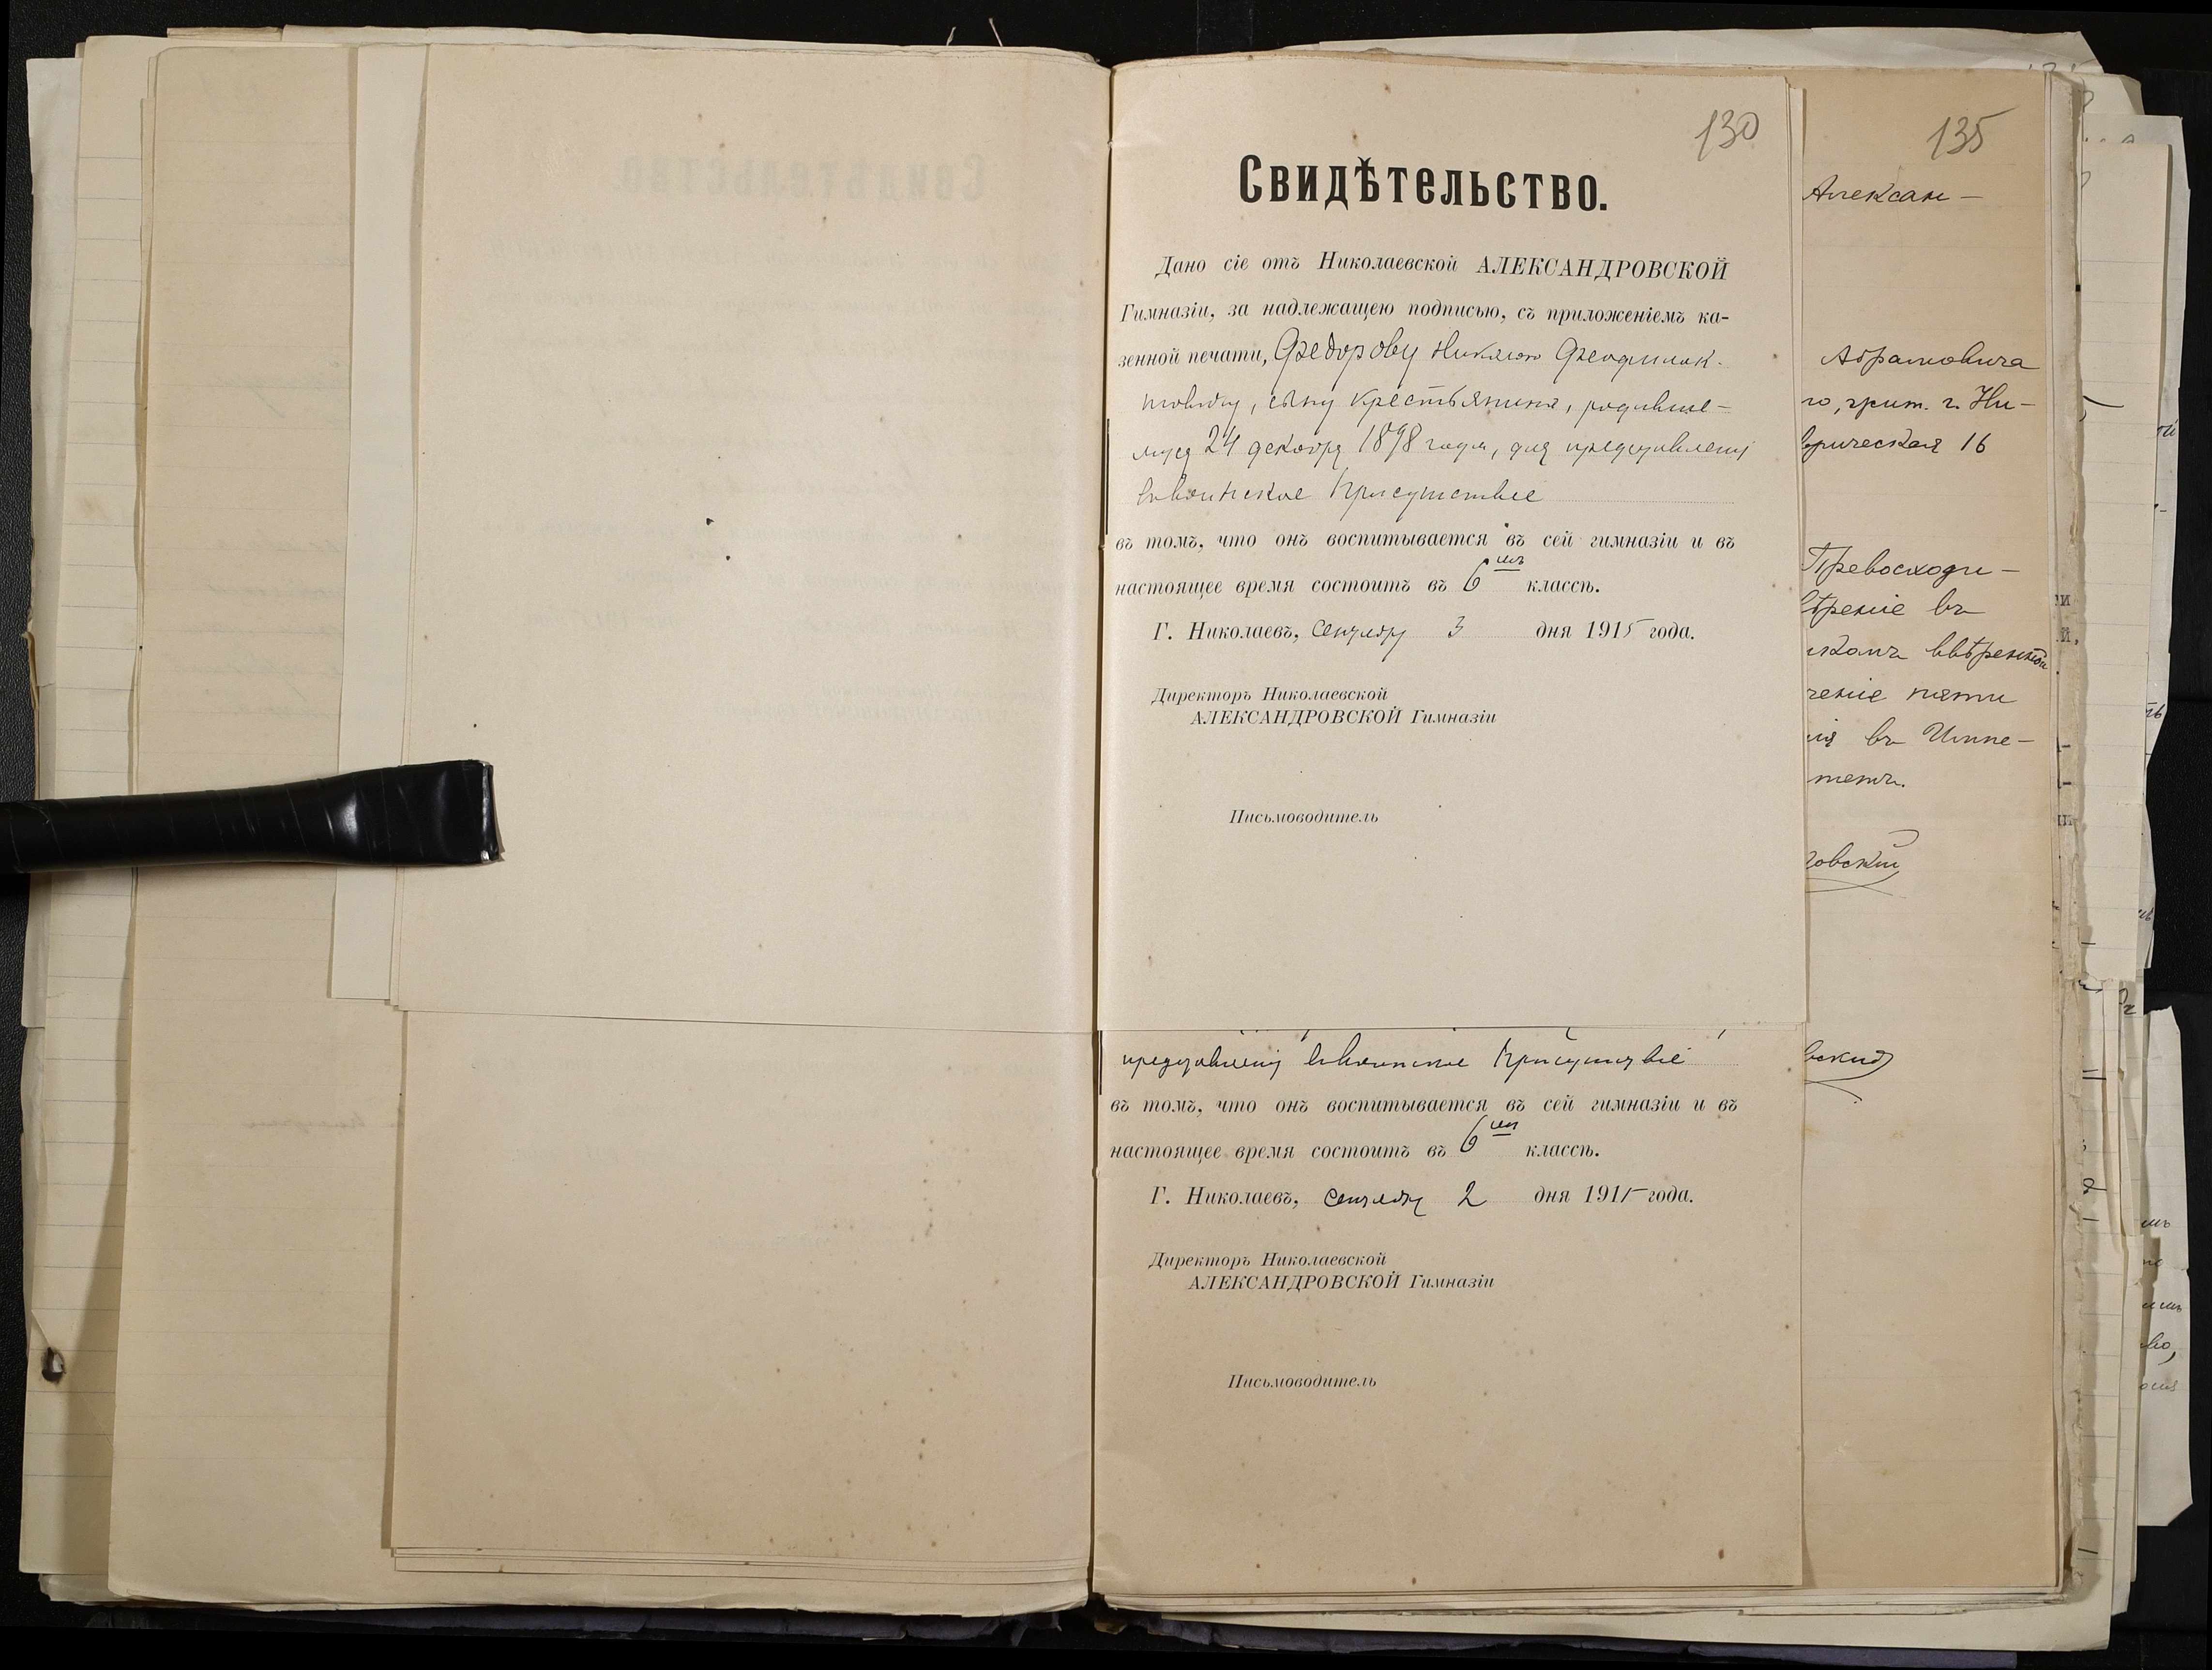 130
Свидѣтельство.
Дано сіе отъ Николаевской АЛЕКСАНДРОВСКОЙ
Гимназіи, за надлежащею подписью, съ приложеніемъ ка-
зенной печати, Федорову Николаю Феофилак-
товичу, сыну крестьянина, родивше-
муся 24 декабря 1898 года, для представленія
въ воинское Присутствіе
въ томъ, что онъ воспитывается въ сей гимназіи и въ
настоящее время состоитъ въ 6мъ классѣ.
Г. Николаевъ, Сентября 3 дня 1915 года.
Директоръ Николаевской
АЛЕКСАНДРОВСКОЙ Гимназіи
Письмоводитель
представленія въ воинское Присутствіе
въ томъ, что онъ воспитывается въ сей гимназіи и въ
настоящее время состоитъ въ 6мъ классѣ.
Г. Николаевъ, Сентября 2 дня 1915 года.
Директоръ Николаевской
АЛЕКСАНДРОВСКОЙ Гимназіи
Письмоводитель
135
Алексан-
Абрамовича
го, прож. г. Ни-
врическая 16
Превосходи-
ѣреніе въ
ввѣренной
ченіе пяти
ія въ Импе-
тетъ.
овскій
вскій